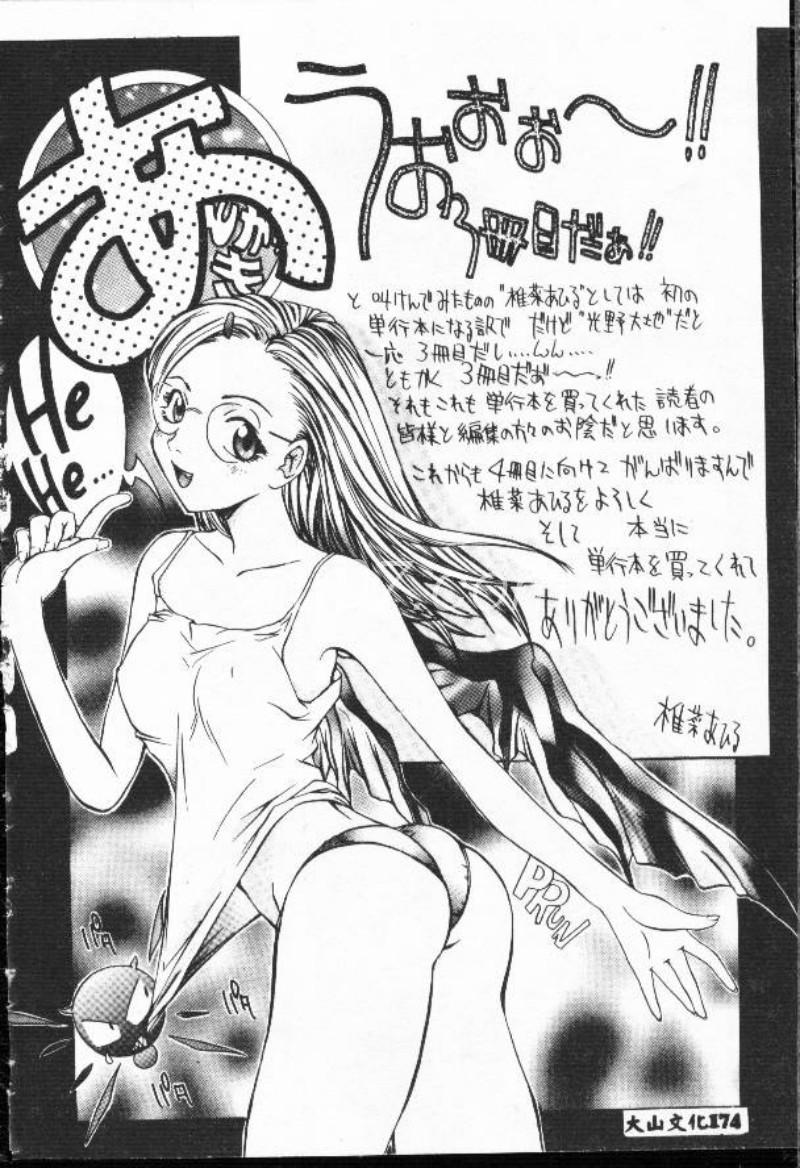 あとがき
うおおぉ〜!!
3冊目だぁ!!
と 叫けんでみたものの"椎菜あひる"としては 初の
単行本になる訳で だけど"光野大地"だと
一応 3冊目だし……んん……
ともかく 3冊目だぉ〜〜!!
それもこれも 単行本を買ってくれた 読者の
皆様と編集の方々のお陰だと思います。
これからも 4冊目に向けて がんばりますんで
椎菜あひるをよろしく
そして 本当に
単行本を買ってくれて
ありがとうございました。
椎菜あひる
He
He…
PRUN
IPA
IPA
IPA
大山文化174